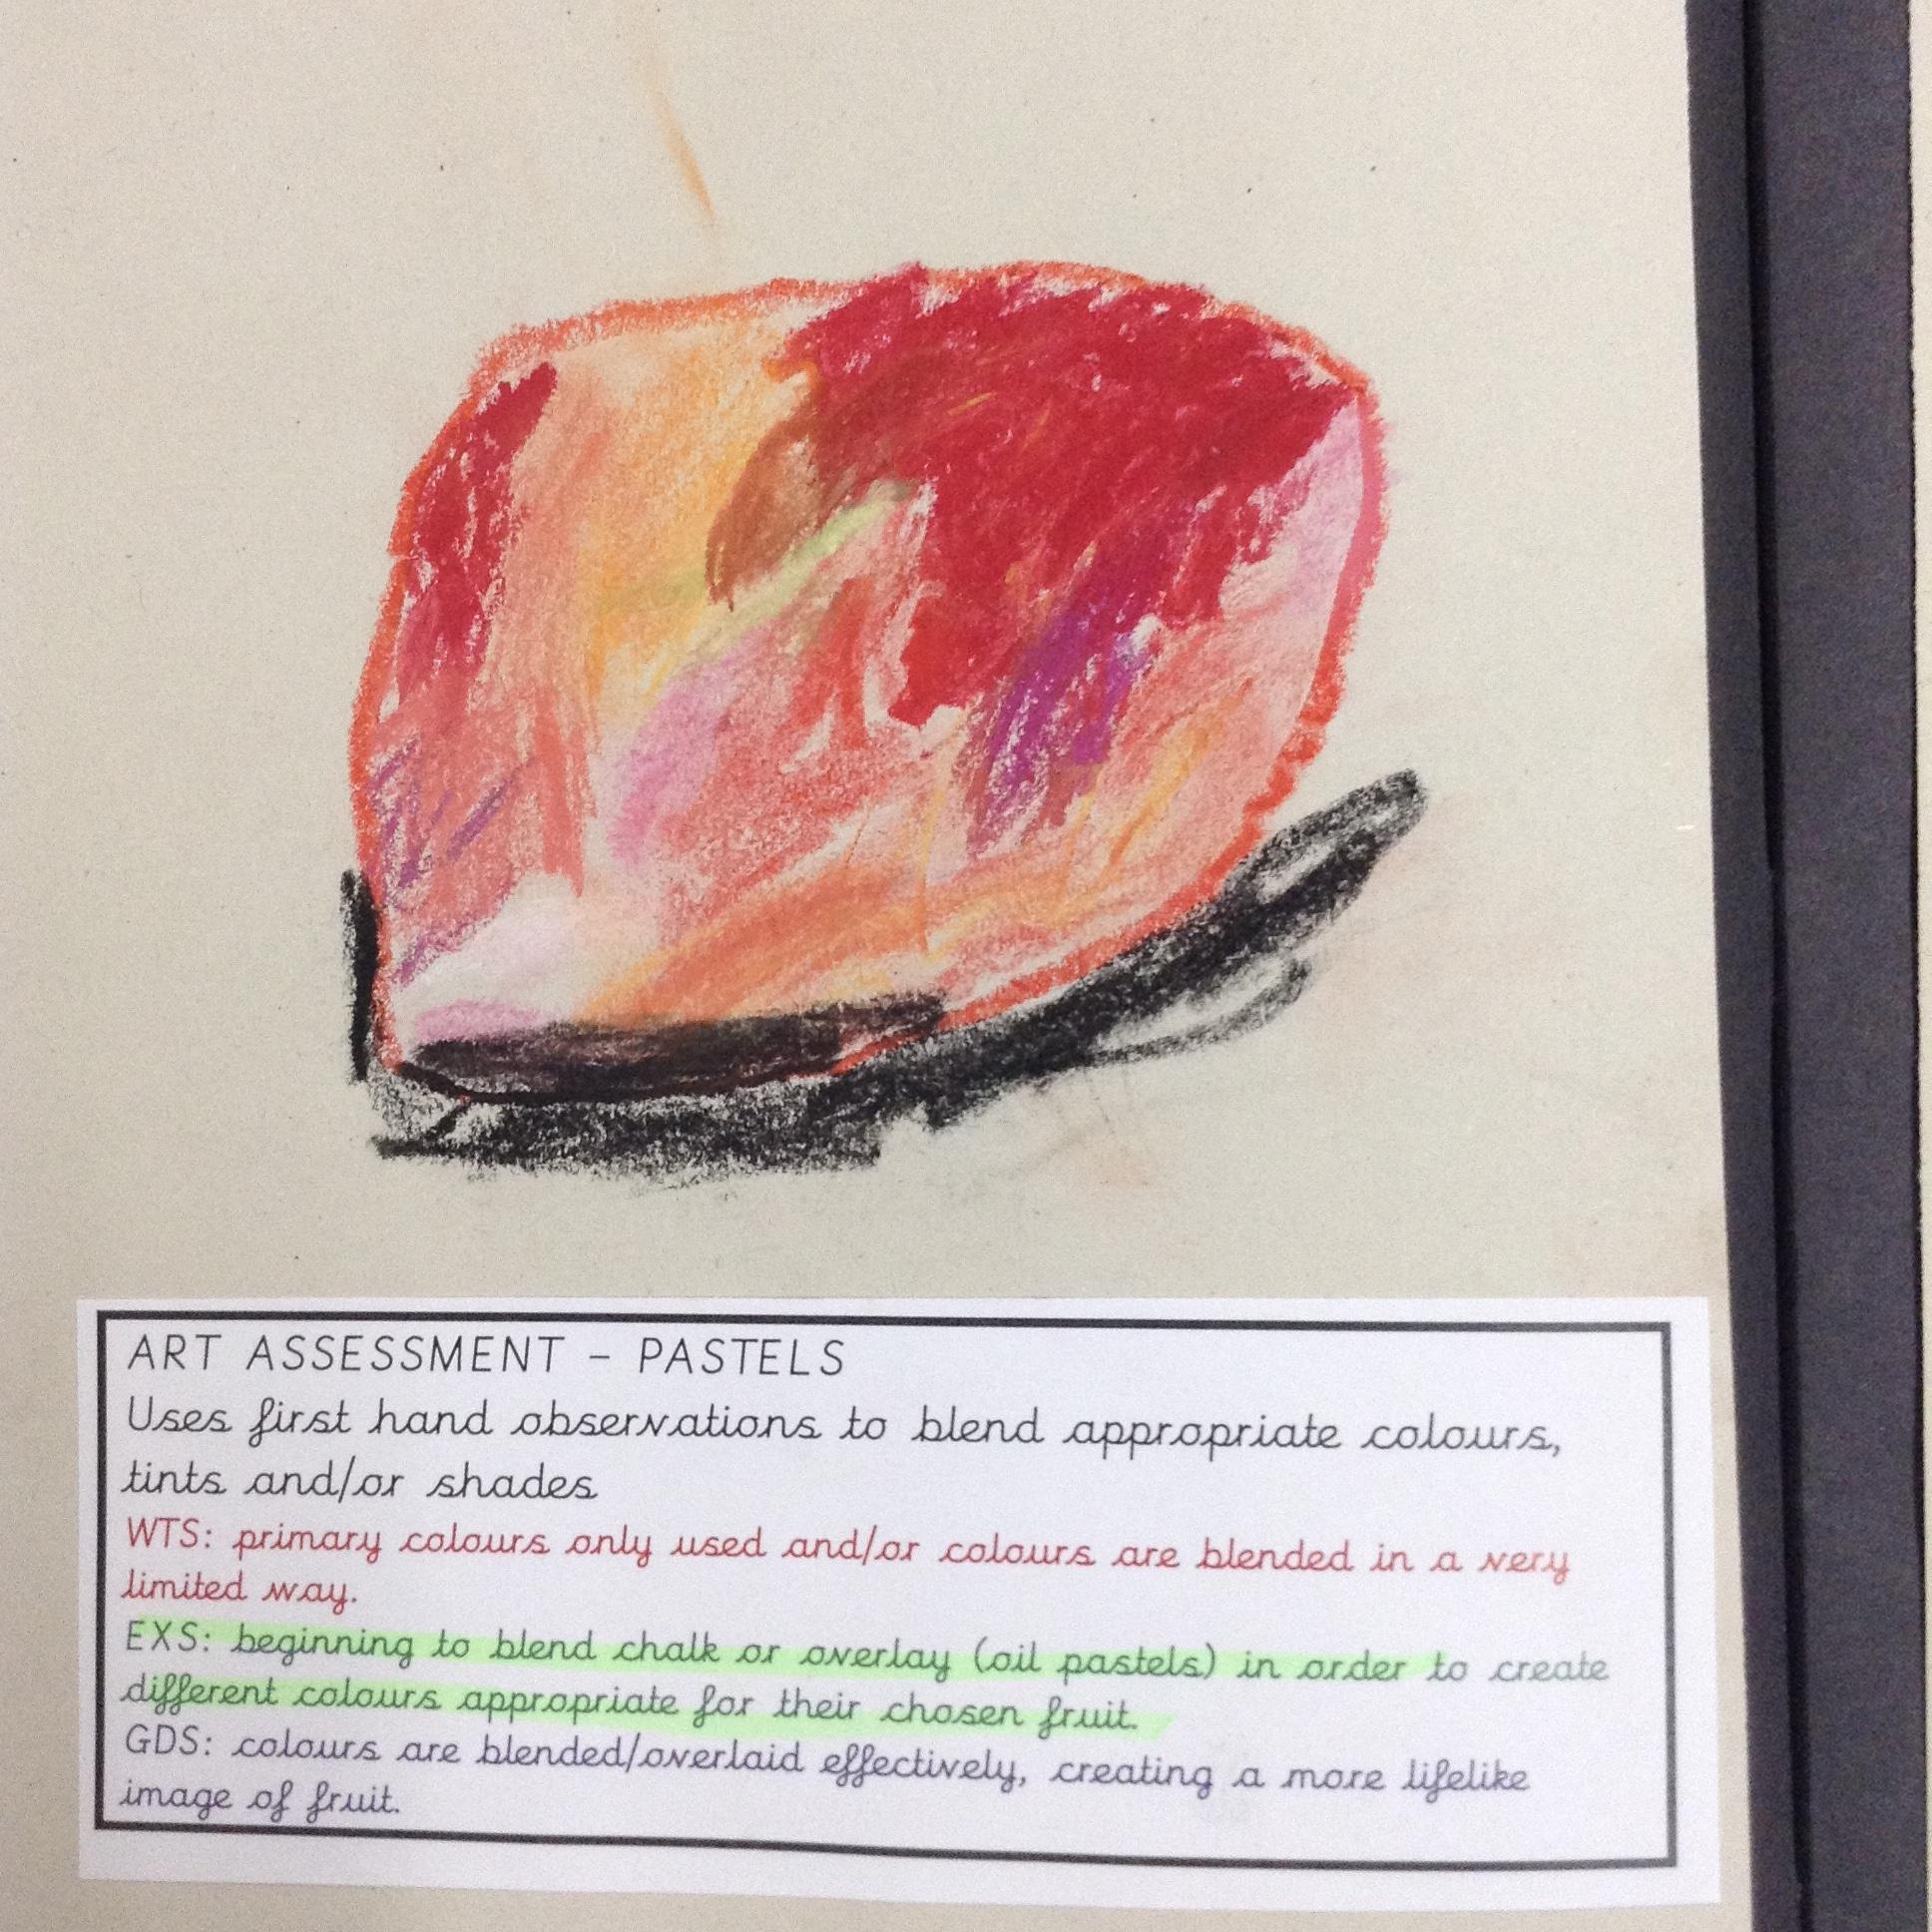 ART ASSESSMENT – PASTELS
Uses first hand observations to blend appropriate colours,
tints and/or shades
WTS: primary colours only used and/or colours are blended in a very
limited way.
EXS: beginning to blend chalk or overlay (oil pastels) in order to create
different colours appropriate for their chosen fruit.
GDS: colours are blended/overlaid effectively, creating a more lifelike
image of fruit.